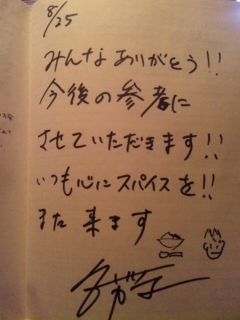 8/25
みんなありがとう!!
今後の参考に
させていただきます!!
いつも心にスパイスを!!
また来ます